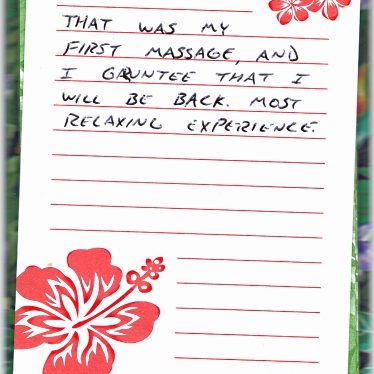 THAT WAS MY
FIRST MASSAGE, AND
I GAUNTEE THAT I
WILL BE BACK. MOST
RELAXING EXPERIENCE.